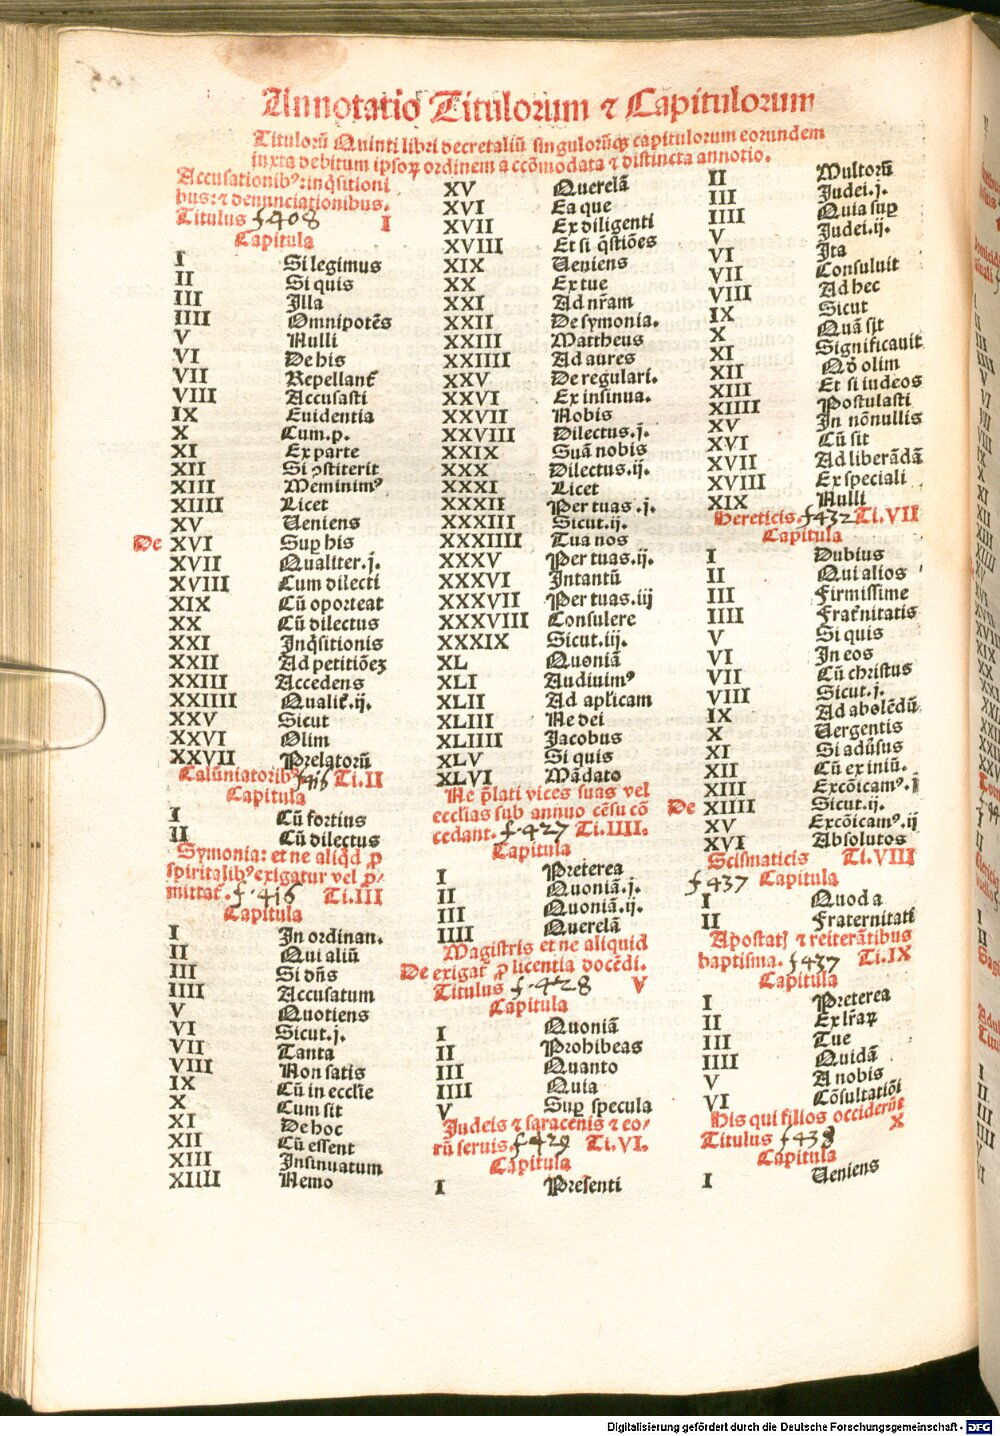 Annotatio Titulorum ⁊ Capitulorum
Titulorū Quinti libri decretaliū singulorūqꝫ capitulorum eorundem
iuxta debitum ipsoꝝ ordinem accōmodata ⁊ distincta annotio.
Accusationibꝰ: inq̄sitioni
bus: ⁊ denunciationibus.
Titulus f 408 I
Capitula
I Si legimus
II Si quis
III Illa
IIII Omnipotēs
V Nulli
VI De his
VII Repellant̄
VIII Accusasti
IX Euidentia
X Cum.p.
XI Ex parte
XII Si ꝯstiterit
XIII Meminimꝰ
XIIII Licet
XV Ueniens
De XVI Suꝑ his
XVII Qualiter.j.
XVIII Cum dilecti
XIX Cū oporteat
XX Cū dilectus
XXI Inq̄sitionis
XXII Ad petitiōeꝫ
XXIII Accedens
XXIIII Qualit̄.ij.
XXV Sicut
XXVI Olim
XXVII Prelatorū
Calūniatoribꝰ f 416 Ti.II
Capitula
I Cū fortius
II Cū dilectus
Symonia: et ne aliqd̄ ꝓ
spiritalibꝰ exigatur vel ꝓ/
mittat̄. f. 416 Ti.III
Capitula
I In ordinan.
II Qui aliū
III Si dn̄s
IIII Accusatum
V Quotiens
VI Sicut.j.
VII Tanta
VIII Non satis
IX Cū in ecclie
X Cum sit
XI De hoc
XII Cū essent
XIII Insinuatum
XIIII Nemo
XV Querelā
XVI Ea que
XVII Ex diligenti
XVIII Et si q̄stiōes
XIX Ueniens
XX Ex tue
XXI Ad nr̄am
XXII De symonia.
XXIII Mattheus
XXIIII Ad aures
XXV De regulari.
XXVI Ex insinua.
XXVII Nobis
XXVIII Dilectus.j.
XXIX Suā nobis
XXX Dilectus.ij.
XXXI Licet
XXXII Per tuas.j.
XXXIII Sicut.ij.
XXXIIII Tua nos
XXXV Per tuas.ij.
XXXVI In tantū
XXXVII Per tuas.iij
XXXVIII Consulere
XXXIX Sicut.iij.
XL Quoniā
XLI Audiuimꝰ
XLII Ad apl̄icam
XLIII Ne dei
XLIIII Jacobus
XLV Si quis
XLVI Mādato
Ne p̄lati vices suas vel
ecclīas sub annuo cēsu cō
cedant. f. 427 Ti.IIII.
Capitula
I Preterea
II Quoniā.j.
III Quoniā.ij.
IIII Querelā
Magistris et ne aliquid
De exigat̄ ꝓ licentia docēdi.
Titulus f. 428 V
Capitula
I Quoniā
II Prohibeas
III Quanto
IIII Quia
V Suꝑ specula
Judeis ⁊ saracenis ⁊ eo/
rū seruis. f. 429 Ti.VI.
Capitula
I Presenti
II Multorū
III Judei.j.
IIII Quia suꝑ
V Judei.ij.
VI Ita
VII Consuluit
VIII Ad hec
IX Sicut
X Quā sit
XI Significauit
XII Qd̄ olim
XIII Et si iudeos
XIIII Postulasti
XV In nōnullis
XVI Cū sit
XVII Ad liberādā
XVIII Ex speciali
XIX Nulli
Hereticis. f 432 Ti.VII
Capitula
I Dubius
II Qui alios
III Firmissime
IIII Frat̄nitatis
V Si quis
VI In eos
VII Cū christus
VIII Sicut.j.
IX Ad abolēdū
X Uergentis
XI Si adūsus
XII Cū ex iniū.
XIII Excōicamꝰ.j
De XIIII Sicut.ij.
XV Excōicamꝰ.ij
XVI Absolutos
Scismaticis Ti.VIII
f 437 Capitula
I Quod a
II Fraternitati
Apostatꝭ ⁊ reiterātibus
baptisma. f 437 Ti.IX
Capitula
I Preterea
II Ex lr̄aꝝ
III Tue
IIII Quidā
V A nobis
VI Cōsultatiōi
His qui filios occiderūt
Titulus f 438 X
Capitula
I Ueniens
Digitalisierung gefördert durch die Deutsche Forschungsgemeinschaft - DFG